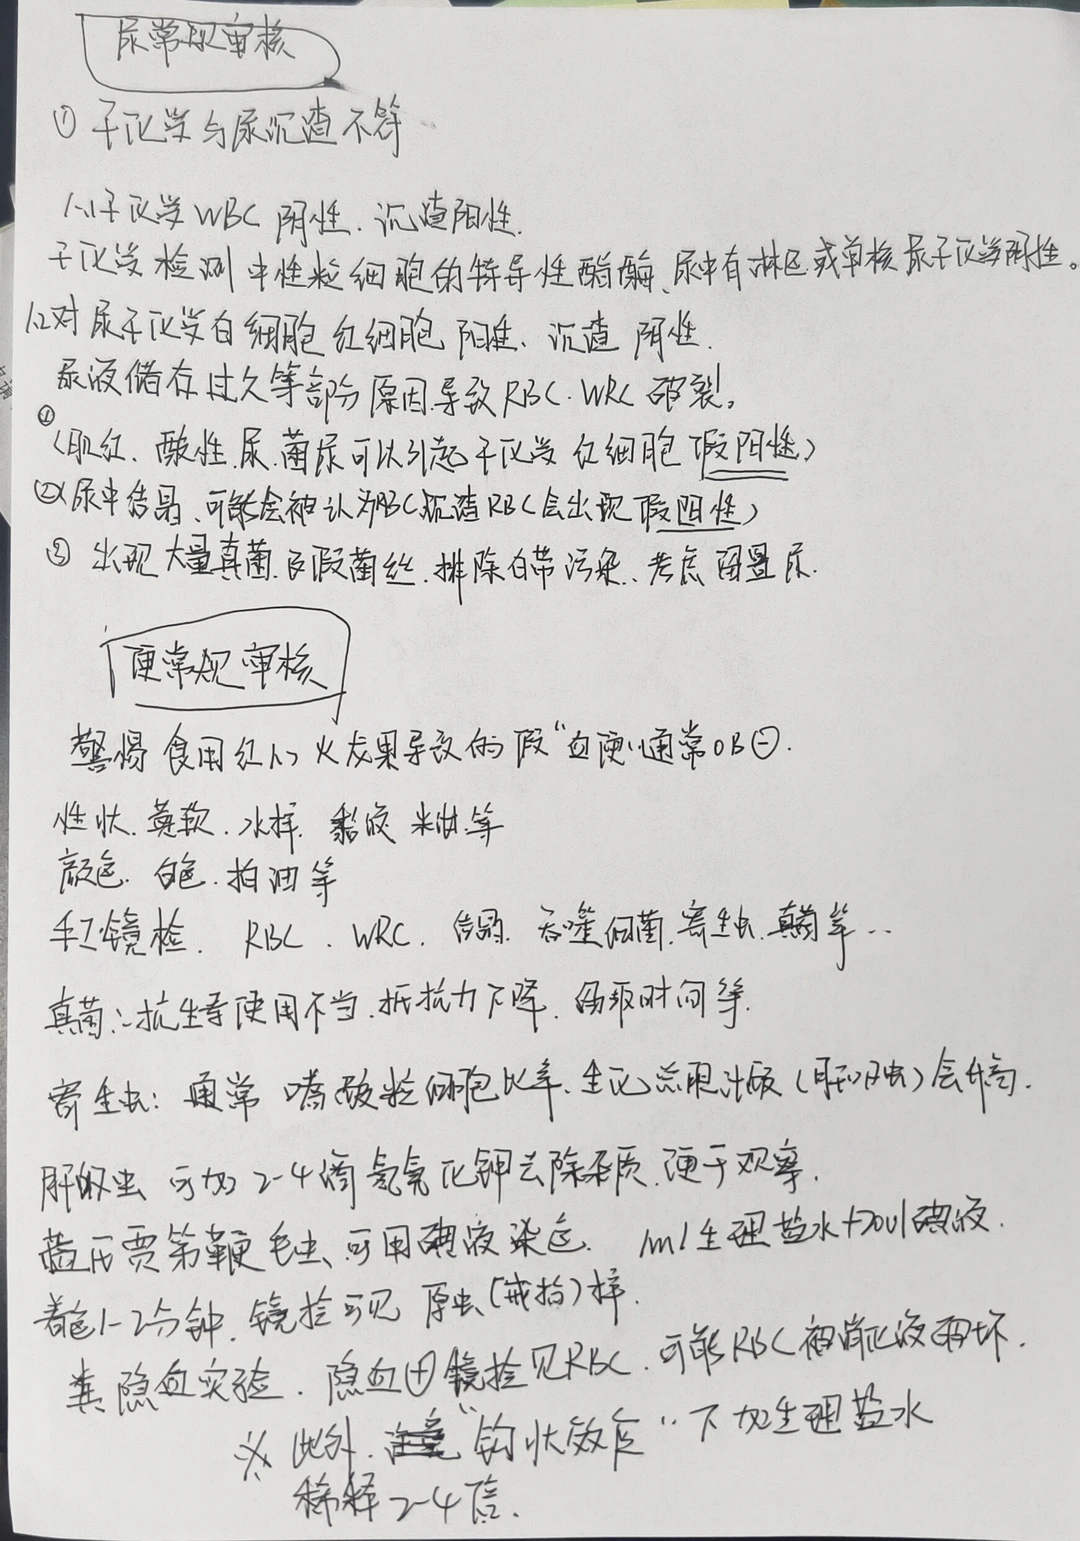 尿常规审核
① 干化学与尿沉渣不符
1.1干化学WBC 阴性.沉渣阳性.
干化学检测中性粒细胞的特异性酯酶、尿中有淋巴或单核尿干化学阴性。
1.2对尿干化学白细胞 红细胞 阳性、沉渣 阴性.
尿液储存过久等部分原因.导致RBC.WRC破裂。
①(肌红、酸性.尿.菌尿可以引起干化学 红细胞 假阳性)
②(尿中结晶、可能会被认为RBC,沉渣RBC会出现 假阳性)
③ 出现大量真菌及假菌丝.排除白带污染、考虑留置尿.
便常规审核
警惕 食用红心火龙果导致的假“血便”通常OB⊖.
性状.黄软.水样.黏液 米泔等
颜色.白色.柏油等
手工镜检. RBC. WRC. 结晶. 吞噬细菌.寄生虫.真菌等..
真菌:抗生素使用不当.抵抗力下降. 时间等.
寄生虫: 通常 嗜酸粒细胞比率.生化总胆汁酸(肝吸虫)会升高.
肝吸虫 可加2-4滴氢氧化钾去除杂质.便于观察.
蓝氏贾第鞭毛虫、可用碘液染色. 1ml生理盐水+20ul碘液.
着色1-2分钟.镜检可见 原虫(戒指)样.
粪隐血实验.隐血⊕镜检见RBC.可能RBC被消化液破坏.
※ 此外.注意“钩状效应”下加生理盐水
稀释2-4倍.